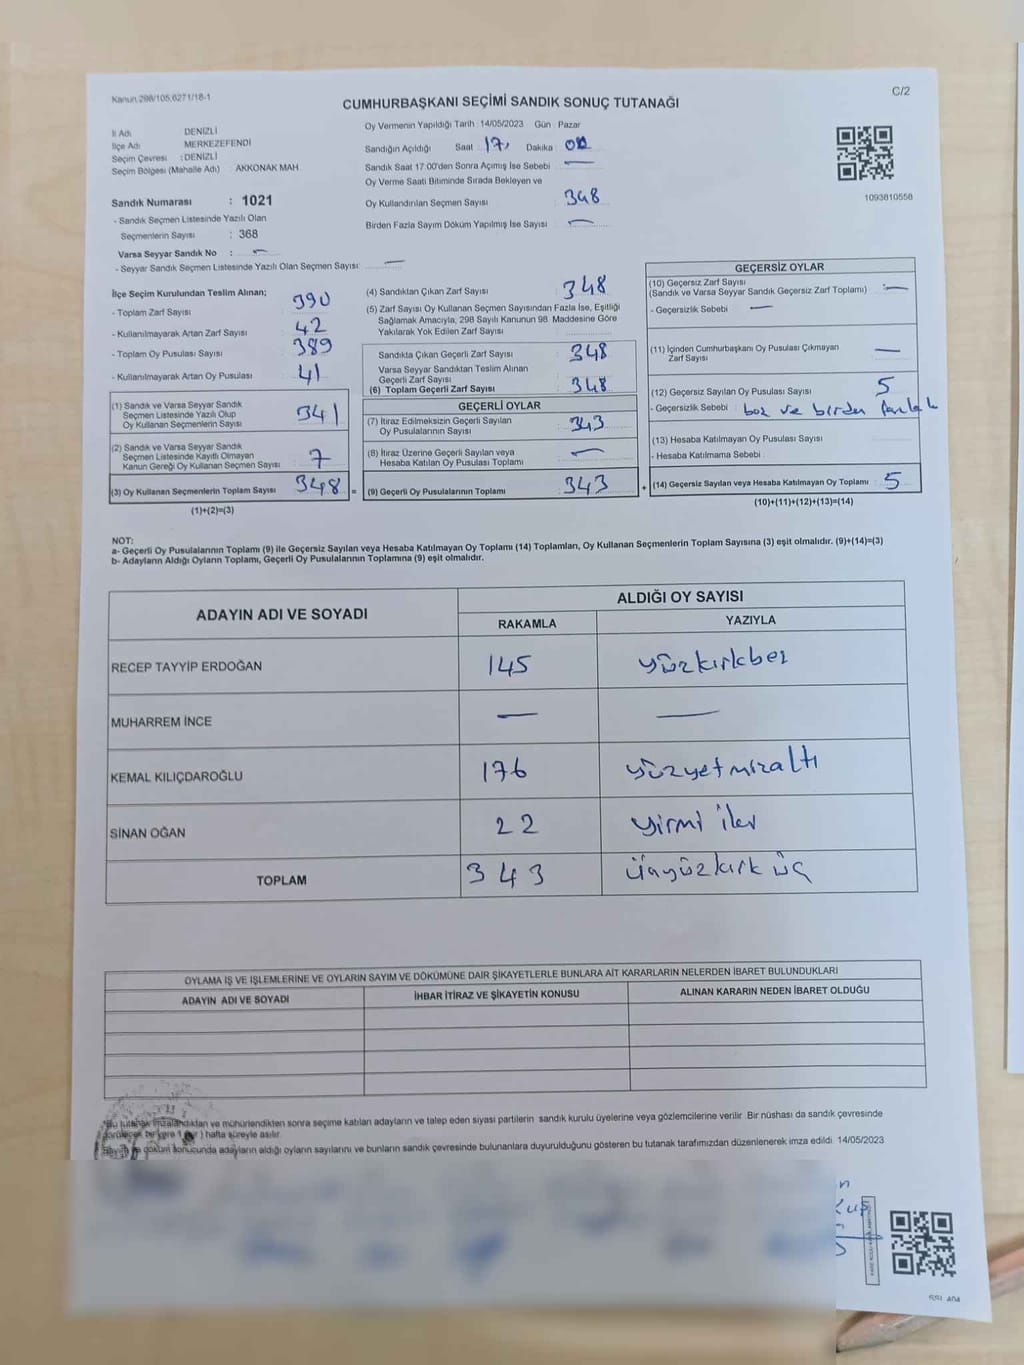 Kanun.298/105,6271/18-1
C/2
CUMHURBAŞKANI SEÇİMİ SANDIK SONUÇ TUTANAĞI
İl Adı DENİZLİ
İlçe Adı MERKEZEFENDİ
Seçim Çevresi : DENİZLİ
Seçim Bölgesi (Mahalle Adı) : AKKONAK MAH.
Sandık Numarası : 1021
- Sandık Seçmen Listesinde Yazılı Olan
Seçmenlerin Sayısı : 368
Varsa Seyyar Sandık No : —
- Seyyar Sandık Seçmen Listesinde Yazılı Olan Seçmen Sayısı: —
Oy Vermenin Yapıldığı Tarih : 14/05/2023 Gün : Pazar
Sandığın Açıldığı Saat 17 Dakika : 00
Sandık Saat 17.00'den Sonra Açımış İse Sebebi : —
Oy Verme Saati Bitiminde Sırada Bekleyen ve
Oy Kullandırılan Seçmen Sayısı : 348
Birden Fazla Sayım Döküm Yapılmış İse Sayısı : —
1093810558
İlçe Seçim Kurulundan Teslim Alınan;
- Toplam Zarf Sayısı : 390
- Kullanılmayarak Artan Zarf Sayısı : 42
- Toplam Oy Pusulası Sayısı : 389
- Kullanılmayarak Artan Oy Pusulası : 41
(1) Sandık ve Varsa Seyyar Sandık
Seçmen Listesinde Yazılı Olup
Oy Kullanan Seçmenlerin Sayısı : 341
(2) Sandık ve Varsa Seyyar Sandık
Seçmen Listesinde Kayıtlı Olmayan
Kanun Gereği Oy Kullanan Seçmen Sayısı : 7
(3) Oy Kullanan Seçmenlerin Toplam Sayısı : 348 =
(1)+(2)=(3)
(4) Sandıktan Çıkan Zarf Sayısı : 348
(5) Zarf Sayısı Oy Kullanan Seçmen Sayısından Fazla İse, Eşitliği
Sağlamak Amacıyla, 298 Sayılı Kanunun 98. Maddesine Göre
Yakılarak Yok Edilen Zarf Sayısı :
Sandıkta Çıkan Geçerli Zarf Sayısı : 348
Varsa Seyyar Sandıktan Teslim Alınan
Geçerli Zarf Sayısı :
(6) Toplam Geçerli Zarf Sayısı : 348
GEÇERLİ OYLAR
(7) İtiraz Edilmeksizin Geçerli Sayılan
Oy Pusulalarının Sayısı : 343
(8) İtiraz Üzerine Geçerli Sayılan veya
Hesaba Katılan Oy Pusulası Toplamı : —
(9) Geçerli Oy Pusulalarının Toplamı : 343 +
GEÇERSİZ OYLAR
(10) Geçersiz Zarf Sayısı
(Sandık ve Varsa Seyyar Sandık Geçersiz Zarf Toplamı) : —
- Geçersizlik Sebebi : —
(11) İçinden Cumhurbaşkanı Oy Pusulası Çıkmayan
Zarf Sayısı : —
(12) Geçersiz Sayılan Oy Pusulası Sayısı : 5
- Geçersizlik Sebebi : boz ve birden fazla
(13) Hesaba Katılmayan Oy Pusulası Sayısı :
- Hesaba Katılmama Sebebi :
(14) Geçersiz Sayılan veya Hesaba Katılmayan Oy Toplamı : 5
(10)+(11)+(12)+(13)=(14)
NOT:
a- Geçerli Oy Pusulalarının Toplamı (9) ile Geçersiz Sayılan veya Hesaba Katılmayan Oy Toplamı (14) Toplamları, Oy Kullanan Seçmenlerin Toplam Sayısına (3) eşit olmalıdır. (9)+(14)=(3)
b- Adayların Aldığı Oyların Toplamı, Geçerli Oy Pusulalarının Toplamına (9) eşit olmalıdır.
ADAYIN ADI VE SOYADI ALDIĞI OY SAYISI
RAKAMLA YAZIYLA
RECEP TAYYİP ERDOĞAN 145 yüzkırkbeş
MUHARREM İNCE — —
KEMAL KILIÇDAROĞLU 176 yüzyetmişaltı
SİNAN OĞAN 22 yirmi iki
TOPLAM 343 üçyüzkırk üç
OYLAMA İŞ VE İŞLEMLERİNE VE OYLARIN SAYIM VE DÖKÜMÜNE DAİR ŞİKAYETLERLE BUNLARA AİT KARARLARIN NELERDEN İBARET BULUNDUKLARI
ADAYIN ADI VE SOYADI İHBAR İTİRAZ VE ŞİKAYETİN KONUSU ALINAN KARARIN NEDEN İBARET OLDUĞU
Bu tutanak imzalandıktan ve mühürlendikten sonra seçime katılan adayların ve talep eden siyasi partilerin sandık kurulu üyelerine veya gözlemcilerine verilir. Bir nüshası da sandık çevresinde
hafta süreyle asılır.
döküm sonucunda adayların aldığı oyların sayılarını ve bunların sandık çevresinde bulunanlara duyurulduğunu gösteren bu tutanak tarafımızdan düzenlenerek imza edildi. 14/05/2023